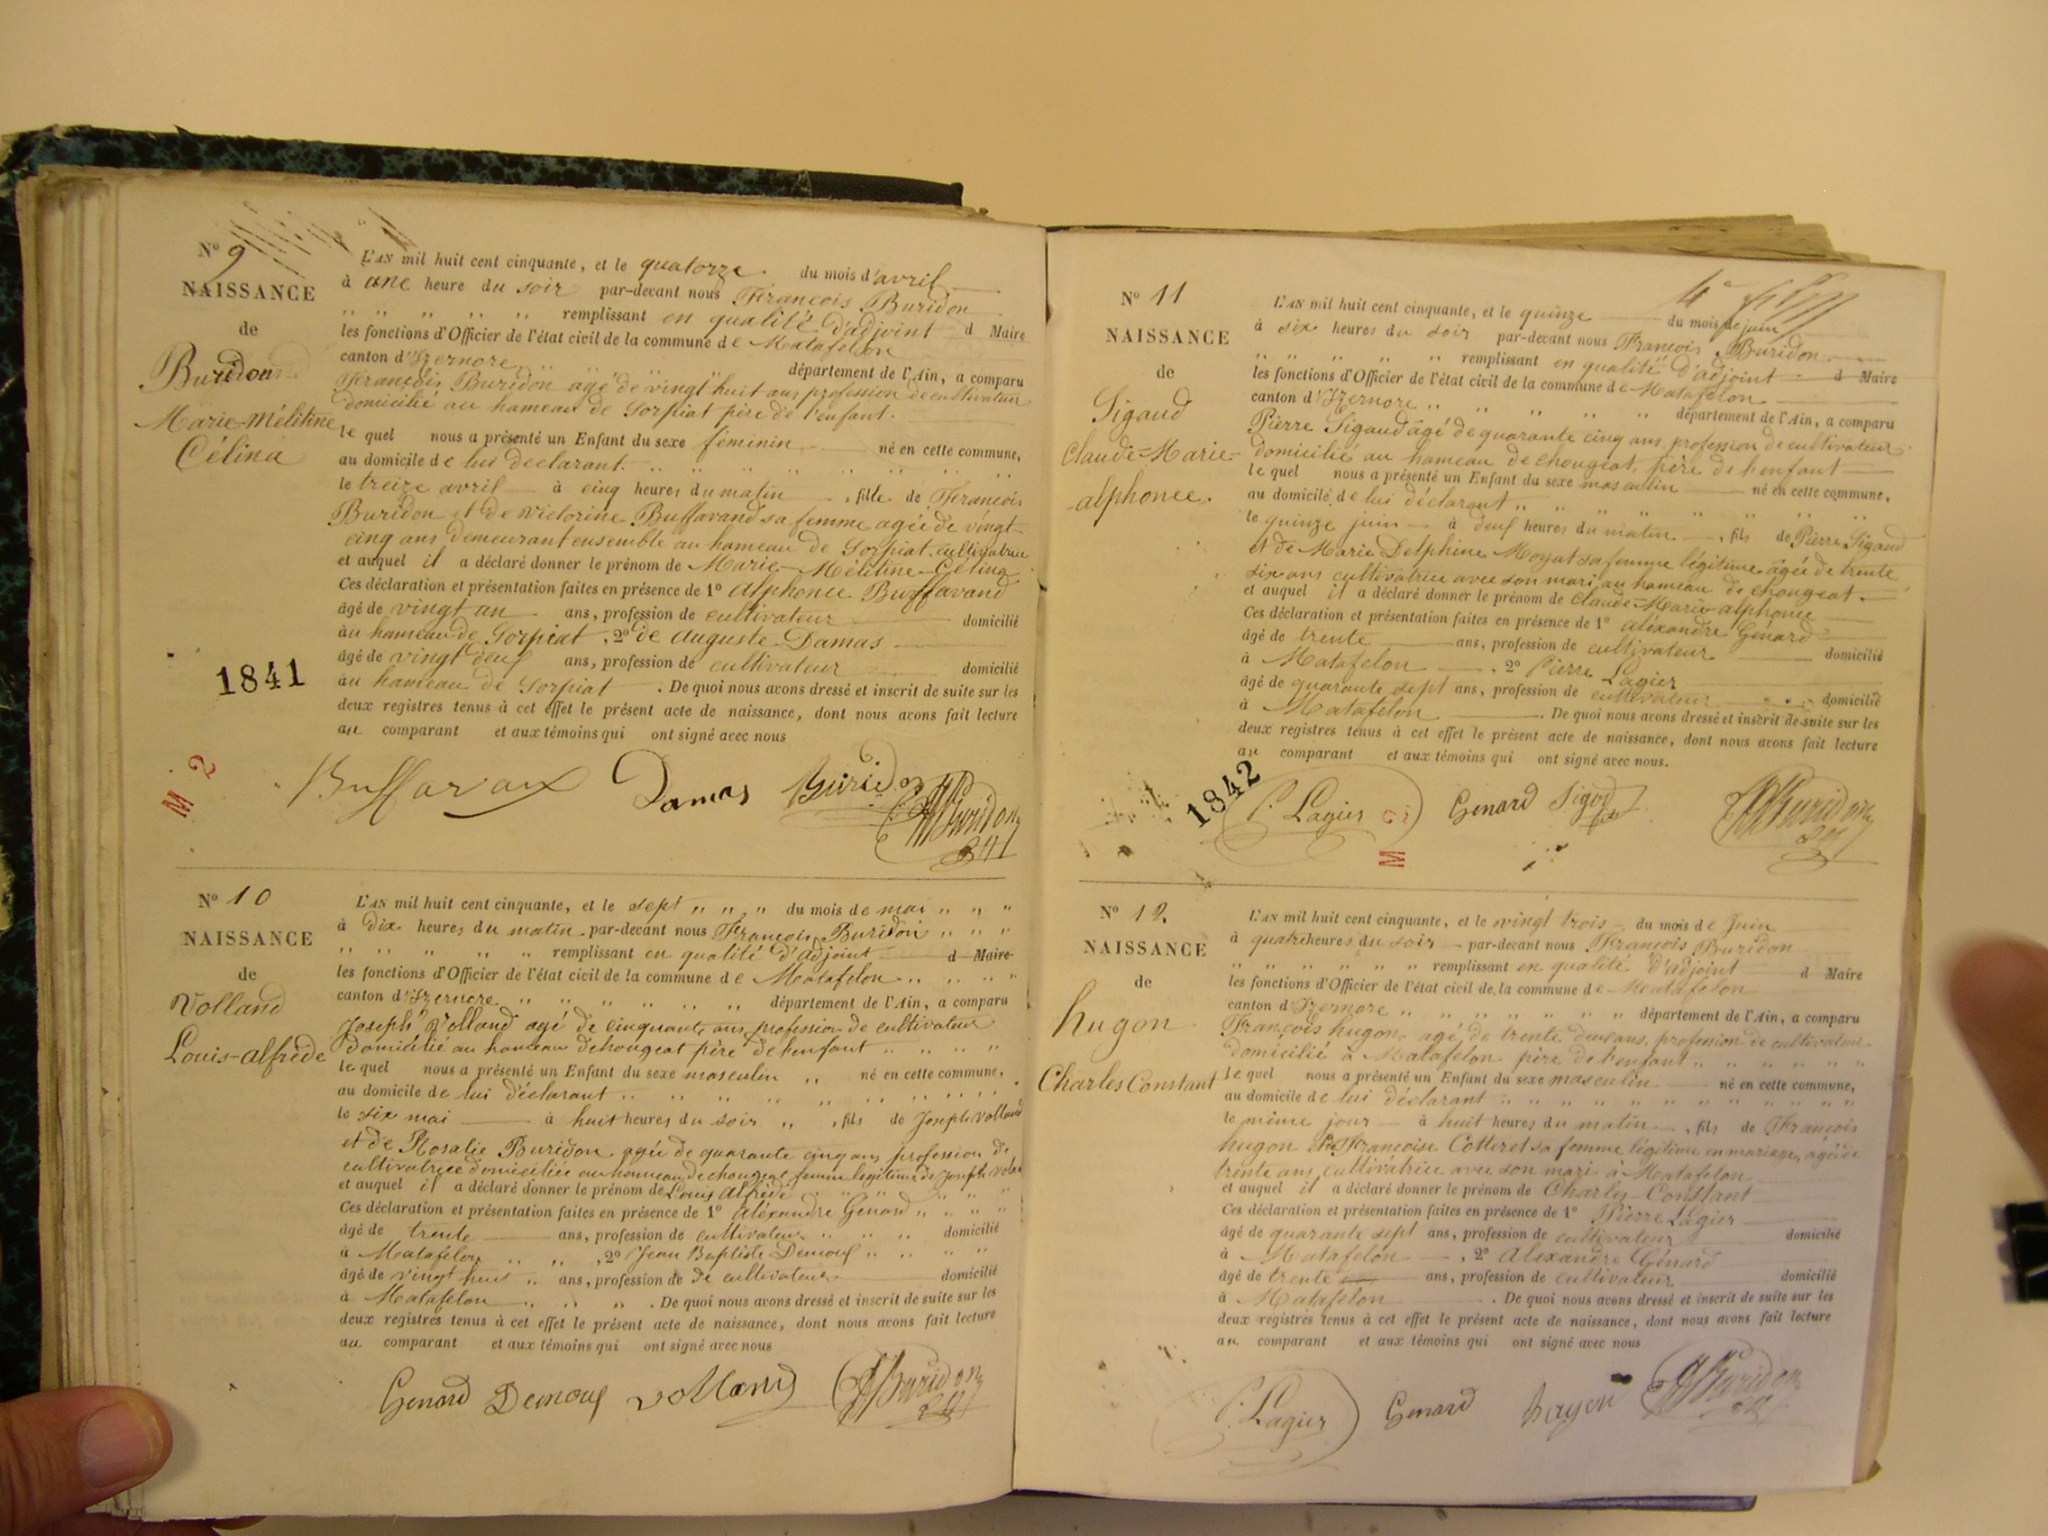 N° 9
NAISSANCE
de
Buridon
Marie-Mélitine
Célina
L'AN mil huit cent cinquante, et le quatorze du mois d'avril
à une heure du soir par-devant nous François Buridon
remplissant en qualité d'adjoint d Maire
les fonctions d'Officier de l'état civil de la commune de Matafelon
canton d'Izernore département de l'Ain, a comparu
François Buridon âgé de vingt huit ans profession de cultivateur
domicilié au hameau de Sorpiat père de l'enfant.
le quel nous a présenté un Enfant du sexe féminin né en cette commune,
au domicile de lui déclarant
le treize avril à cinq heures du matin, fille de François
Buridon et de Victorine Buffavand sa femme agée de vingt
cinq ans demeurant ensemble au hameau de Sorpiat cultivatrice
et auquel il a déclaré donner le prénom de Marie-Mélitine-Célina
Ces déclaration et présentation faites en présence de 1° Alphonce Buffavand
âgé de vingt an ans, profession de cultivateur domicilié
au hameau de Sorpiat, 2° de Auguste Damas
âgé de vingt deux ans, profession de cultivateur domicilié
au hameau de Sorpiat. De quoi nous avons dressé et inscrit de suite sur les
deux registres tenus à cet effet le présent acte de naissance, dont nous avons fait lecture
au comparant et aux témoins qui ont signé avec nous
1841
M 2
Damas Buridon
Buridon
N° 10
NAISSANCE
de
Volland
Louis-alfrède
L'AN mil huit cent cinquante, et le sept " " " du mois de mai " " "
à dix heures du matin par-devant nous François Buridon " " "
" " " " " " remplissant en qualité d'adjoint d Maire
les fonctions d'Officier de l'état civil de la commune de Matafelon " " " "
canton d'Izernore " " " " " " " département de l'Ain, a comparu
Joseph Volland agé de cinquante ans profession de cultivateur
domicilié au hameau de chougeat père de l'enfant " " " "
le quel nous a présenté un Enfant du sexe masculin " né en cette commune,
au domicile de lui déclarant " " " " " " " " "
le six mai à huit heures du soir ", fils de Joseph Volland
et de Rosalie Buridon agée de quarante cinq ans profession de
cultivatrice domiciliée au hameau de chougeat femme légitime de Joseph Volland
et auquel il a déclaré donner le prénom de Louis Alfrède " " " "
Ces déclaration et présentation faites en présence de 1° aléxandre Génard " " " "
âgé de trente ans, profession de cultivateur " " " domicilié
à Matafelon " " ", 2° Jean Baptiste Demouf " " " "
âgé de vingt huit " ans, profession de de cultivateur domicilié
à Matafelon " " ". De quoi nous avons dressé et inscrit de suite sur les
deux registres tenus à cet effet le présent acte de naissance, dont nous avons fait lecture
au comparant et aux témoins qui ont signé avec nous
Genard Demouf volland Buridon
N° 11
NAISSANCE
de
Sigaud
Claude-Marie-
alphonce.
L'AN mil huit cent cinquante, et le quinze du mois de juin
à six heures du soir par-devant nous François Buridon
" " " " " remplissant en qualité d'adjoint d Maire
les fonctions d'Officier de l'état civil de la commune de Matafelon
canton d'Izernore " " " " " " département de l'Ain, a comparu
Pierre Sigaud âgé de quarante cinq ans, profession de cultivateur
domicilié au hameau de chougeat, père de l'enfant
le quel nous a présenté un Enfant du sexe masculin né en cette commune,
au domicile de lui déclarant " " " " " " " "
le quinze juin à deux heures du matin, fils de Pierre Sigaud
et de Marie Delphine Moyat sa femme légitime agée de trente
six ans cultivatrice avec son mari au hameau de chougeat.
et auquel il a déclaré donner le prénom de Claude-Marie-alphonce
Ces déclaration et présentation faites en présence de 1° alexandre Génard
âgé de trente ans, profession de cultivateur domicilié
à Matafelon, 2° Pierre Lagier
âgé de quarante sept ans, profession de cultivateur domicilié
à Matafelon. De quoi nous avons dressé et inscrit de suite sur les
deux registres tenus à cet effet le présent acte de naissance, dont nous avons fait lecture
au comparant et aux témoins qui ont signé avec nous.
1842
P. Lagier Genard Buridon
M
N° 12
NAISSANCE
de
hugon
Charles Constant
L'AN mil huit cent cinquante, et le vingt trois du mois de Juin
à quatre heures du soir par-devant nous François Buridon
" " " " " " remplissant en qualité d'adjoint d Maire
les fonctions d'Officier de l'état civil de la commune de Matafelon
canton d'Izernore " " " " " " " département de l'Ain, a comparu
François hugon agé de trente deux ans, profession de cultivateur
domicilié à Matafelon père de l'enfant " " " " " "
le quel nous a présenté un Enfant du sexe masculin né en cette commune,
au domicile de lui déclarant " " " " " " " " " "
le même jour à huit heures du matin, fils de François
hugon et de Françoise Cotteret sa femme légitime en mariage, agée de
trente ans, cultivatrice avec son mari à Matafelon
et auquel il a déclaré donner le prénom de Charles-Constant
Ces déclaration et présentation faites en présence de 1° Pierre Lagier
âgé de quarante sept ans, profession de cultivateur domicilié
à Matafelon, 2° Alexandre Génard
âgé de trente ans, profession de cultivateur domicilié
à Matafelon. De quoi nous avons dressé et inscrit de suite sur les
deux registres tenus à cet effet le présent acte de naissance, dont nous avons fait lecture
au comparant et aux témoins qui ont signé avec nous
P. Lagier Genard Buridon